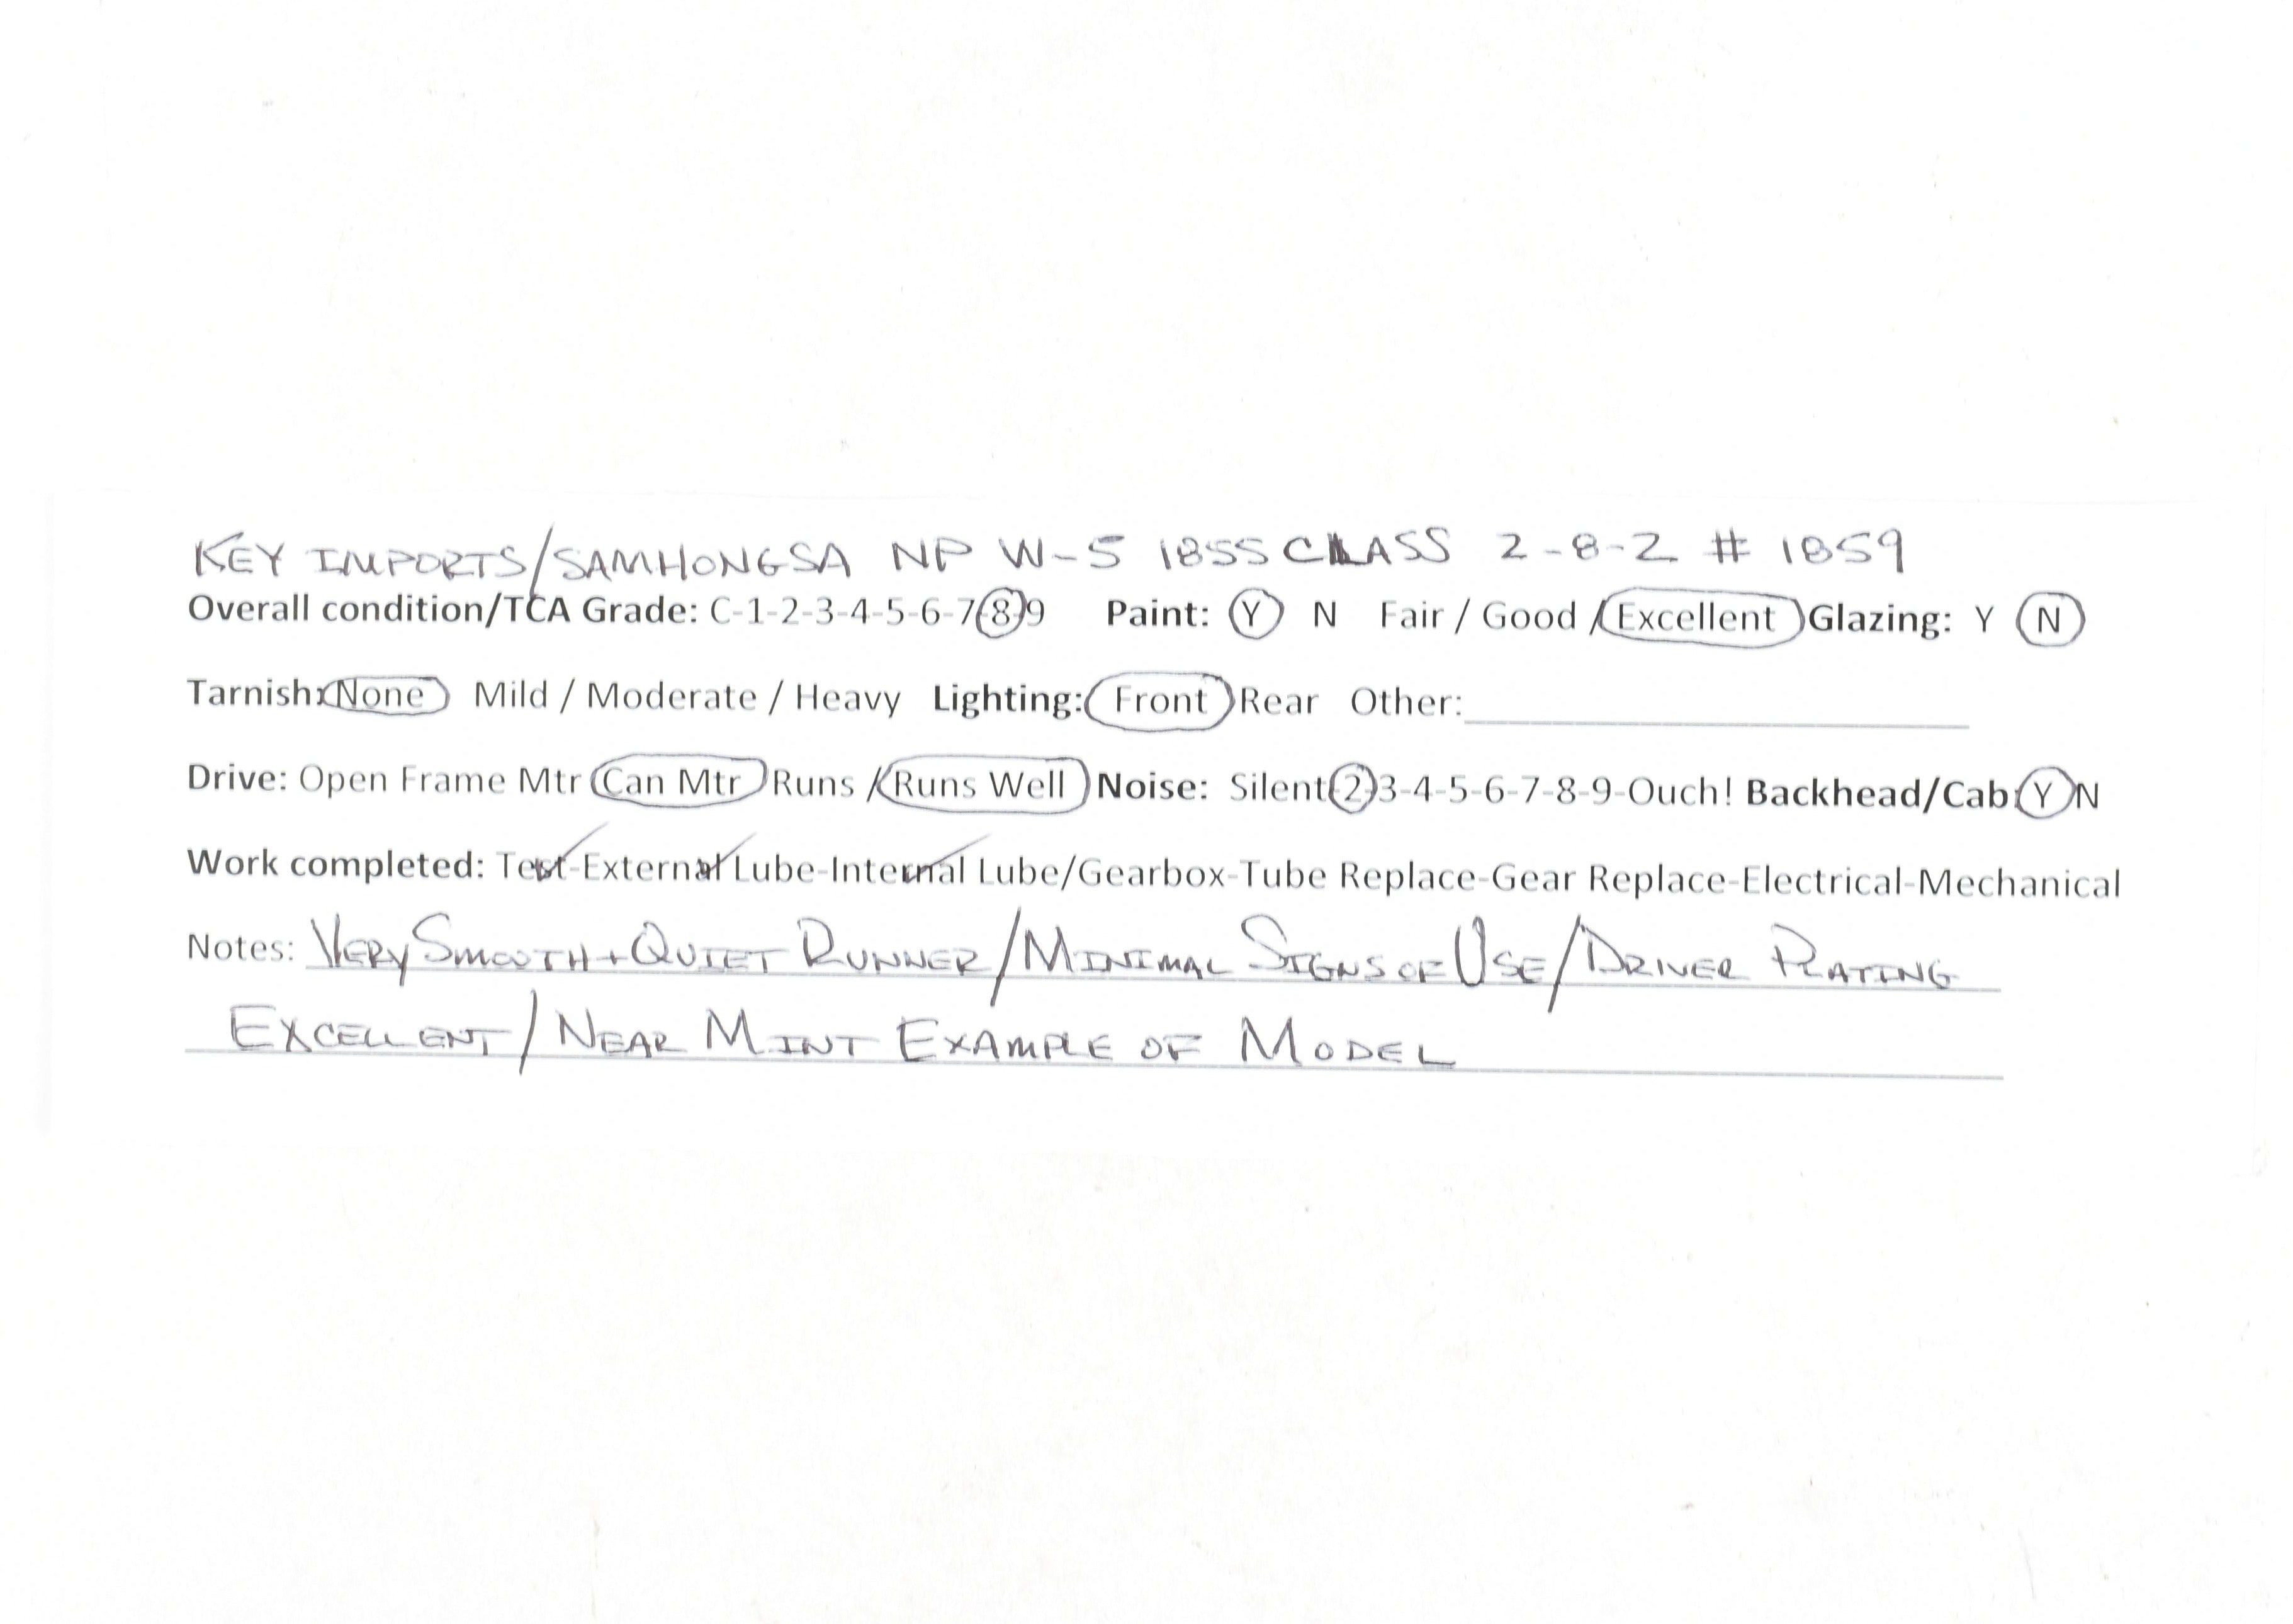 KEY IMPORTS/SAMHONGSA NP W-5 1855 CLASS 2-8-2 # 1859
Overall condition/TCA Grade: C-1-2-3-4-5-6-7-8-9 Paint: Y N Fair / Good / Excellent Glazing: Y N
Tarnish: None Mild / Moderate / Heavy Lighting: Front Rear Other:
Drive: Open Frame Mtr Can Mtr Runs / Runs Well Noise: Silent-2-3-4-5-6-7-8-9-Ouch! Backhead/Cab: Y N
Work completed: Test-External Lube-Internal Lube/Gearbox-Tube Replace-Gear Replace-Electrical-Mechanical
Notes: VERY SMOOTH + QUIET RUNNER/MINIMAL SIGNS OF USE/DRIVER PLATING
EXCELLENT/NEAR MINT EXAMPLE OF MODEL